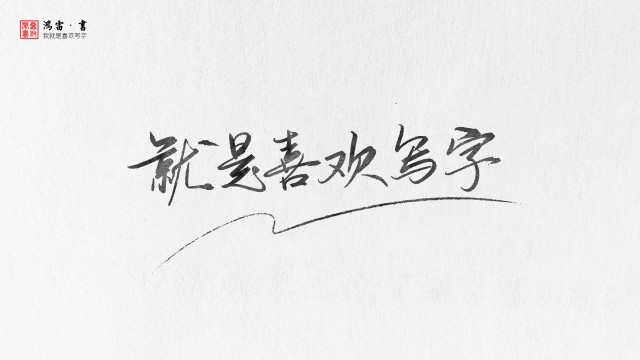 鸿雷·書
我就是喜欢写字
就是喜欢写字